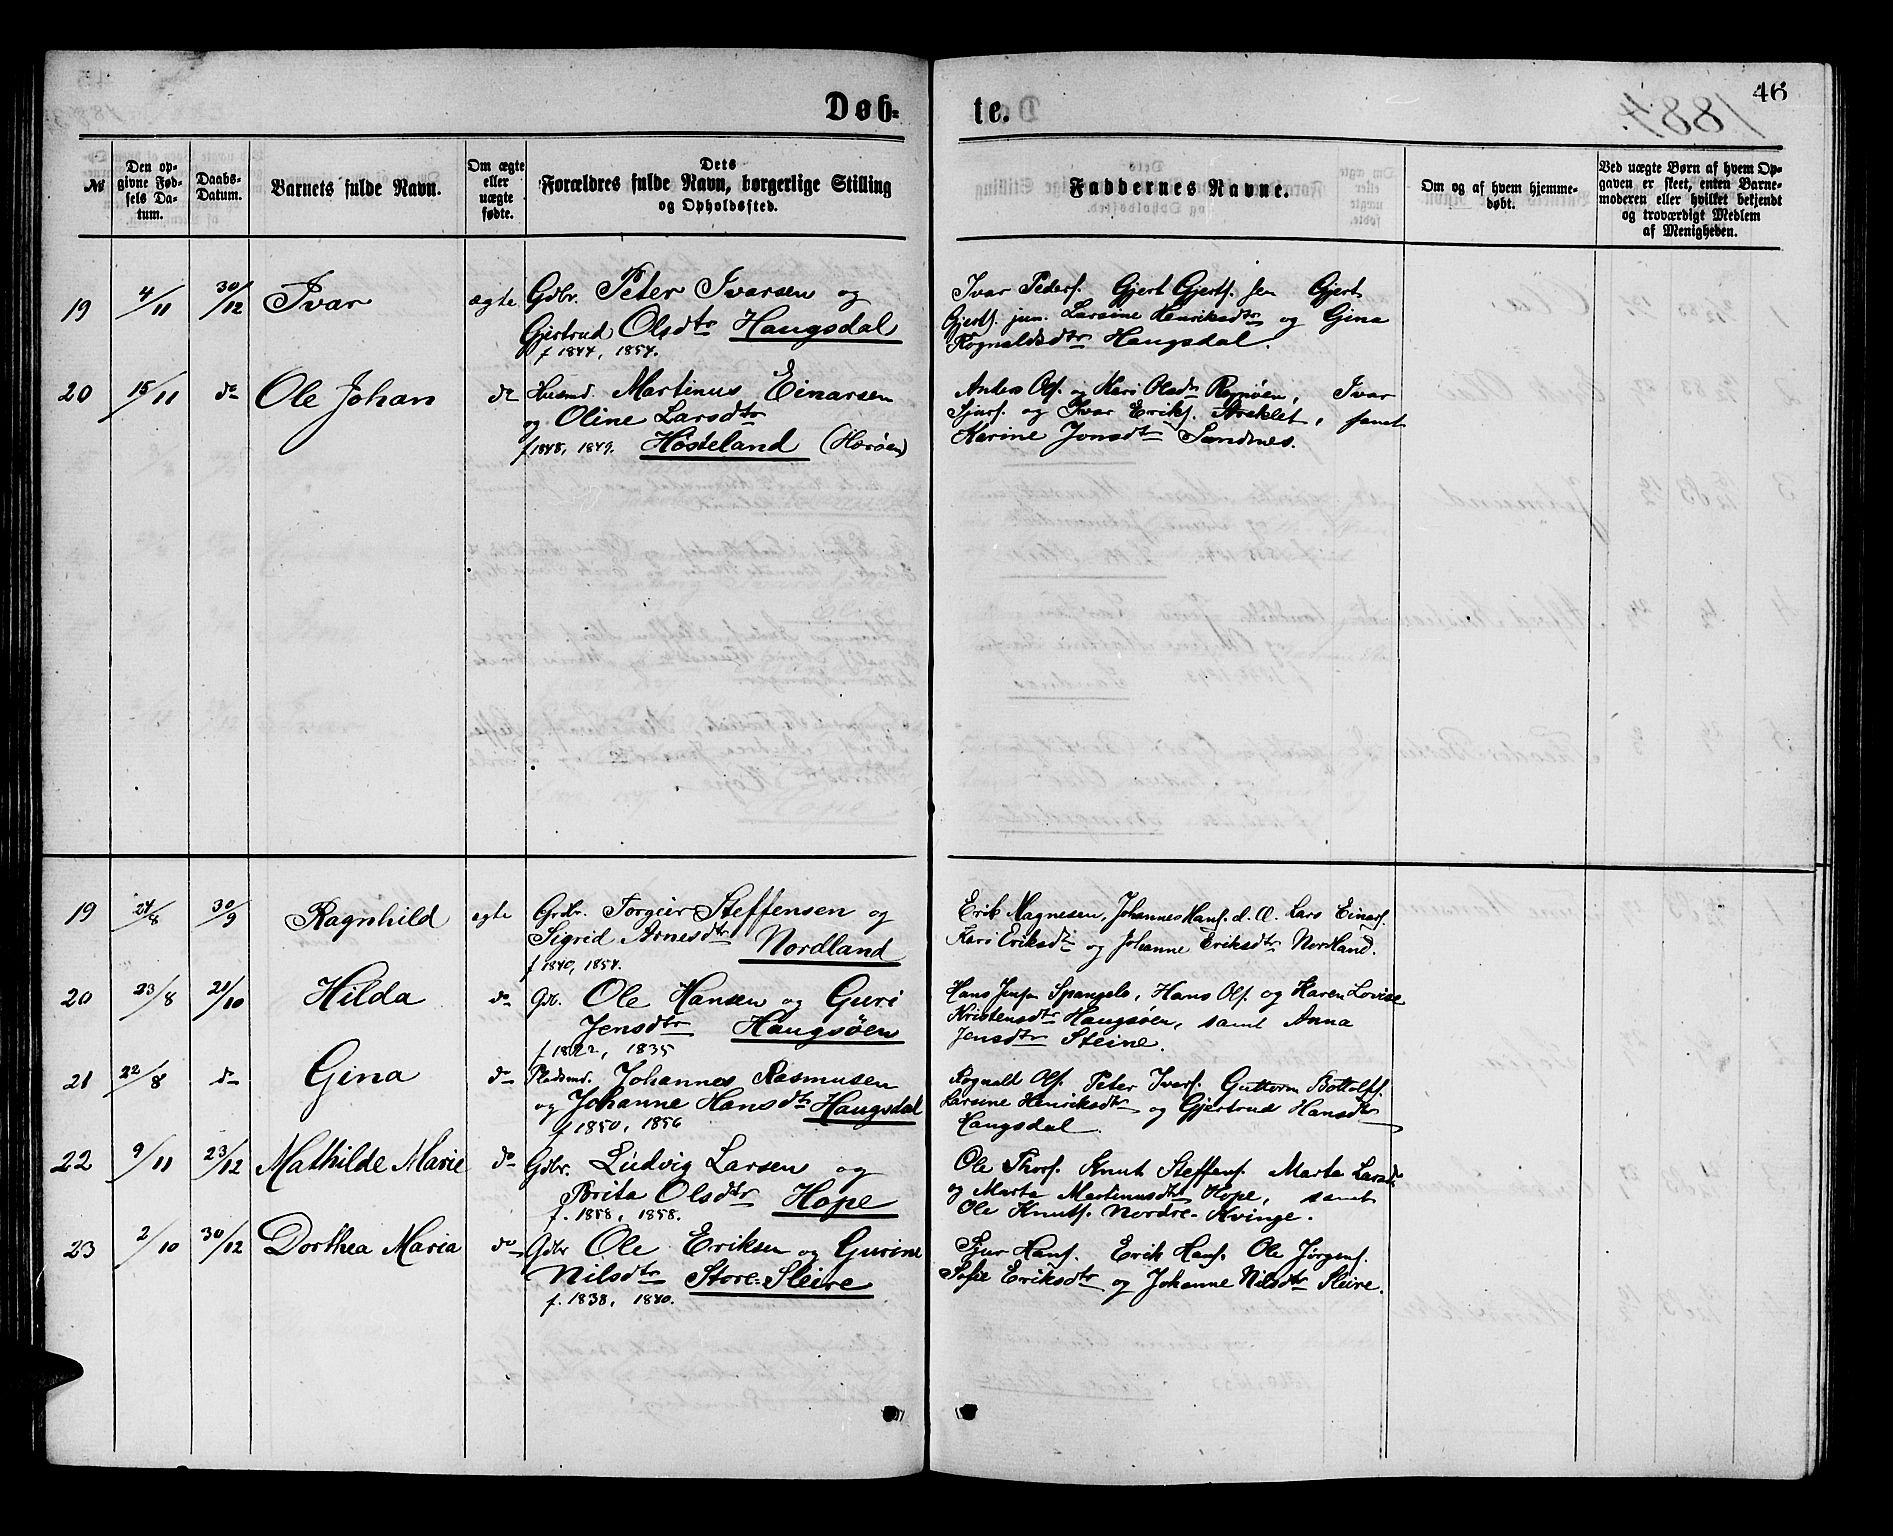 46
Døb-
te.
№
Den opgivne Fødsels Datum.
Daabs-Datum.
Barnets fulde Navn.
Om ægte eller uægte fødte.
Dets
Forældres fulde Navn, borgerlige Stilling
og Opholdssted.
Faddernes Navne.
Om og af hvem hjemmedøbt.
Ved uægte Børn af hvem Opgaven er skeet, enten Barnemoderen eller hvilket bekjendt og troværdigt Medlem af Menigheden.
19 4/11 30/12 Ivar ægte Gdbr. Peter Ivarsen og
Gjertrud Olsdtr Haugsdal
f 1844, 1854.
Ivar Peders. Gjert Gjerts. sen Gjert
Gjerts. jun. Larsine Henriksdtr og Gina
Rognaldsdtr Haugsdal.
20 15/11 do Ole Johan do Husmd. Martinus Einarsen
og Oline Larsdtr
f 1848, 1849. Høsteland (Hærøen)
Anders Ols. og Kari Olsdr Rognøen, Ivar
Sjurs. og Ivar Eriks. Areklet, samt
Karine Jonsdtr Sandnes.
19 24/8 30/9 Ragnhild ægte Grdbr. Torgeir Steffensen og
Sigrid Arnesdtr Nordland
f 1840, 1854.
Erik Magnesen, Johannes Hans. d. Æ. Lars Einars.
Kari Eriksdtr og Johanne Eriksdtr Nordland.
20 23/8 21/10 Hilda do Gdb. Ole Hansen og Guri
Jensdtr Haugsøen
f 1822, 1835
Hans Jensen Spangelo, Hans Ols. og Karen Lovise
Kristensdtr Haugsøen, samt Anna
Jensdtr Steine.
21 22/8 do Gina do Pladsmd. Johannes Rasmusen
og Johanne Hansdtr Haugsdal
f 1850, 1856
Rognald Ols. Peter Ivars. Guttorm Bottolfs.
Larsine Henriksdtr og Gjertrud Hansdtr
Haugsdal.
22 9/11 23/12 Mathilde Marie do Gdbr. Ludvig Larsen og
Brita Olsdtr Hope
f. 1858, 1858.
Ole Thors. Knut Steffens. Marta Larsd.
og Marta Martinusdtr Hope, samt
Ole Knuts. Nordre-Kvinge.
23 2/10 30/12 Dorthea Maria do Gdbr Ole Eriksen og Gurine
Nilsdtr Store-Sleire
f. 1838, 1840.
Sjur Hans. Erik Hans. Ole Jørgens.
Sofie Eriksdtr og Johanne Nilsdtr Sleire.